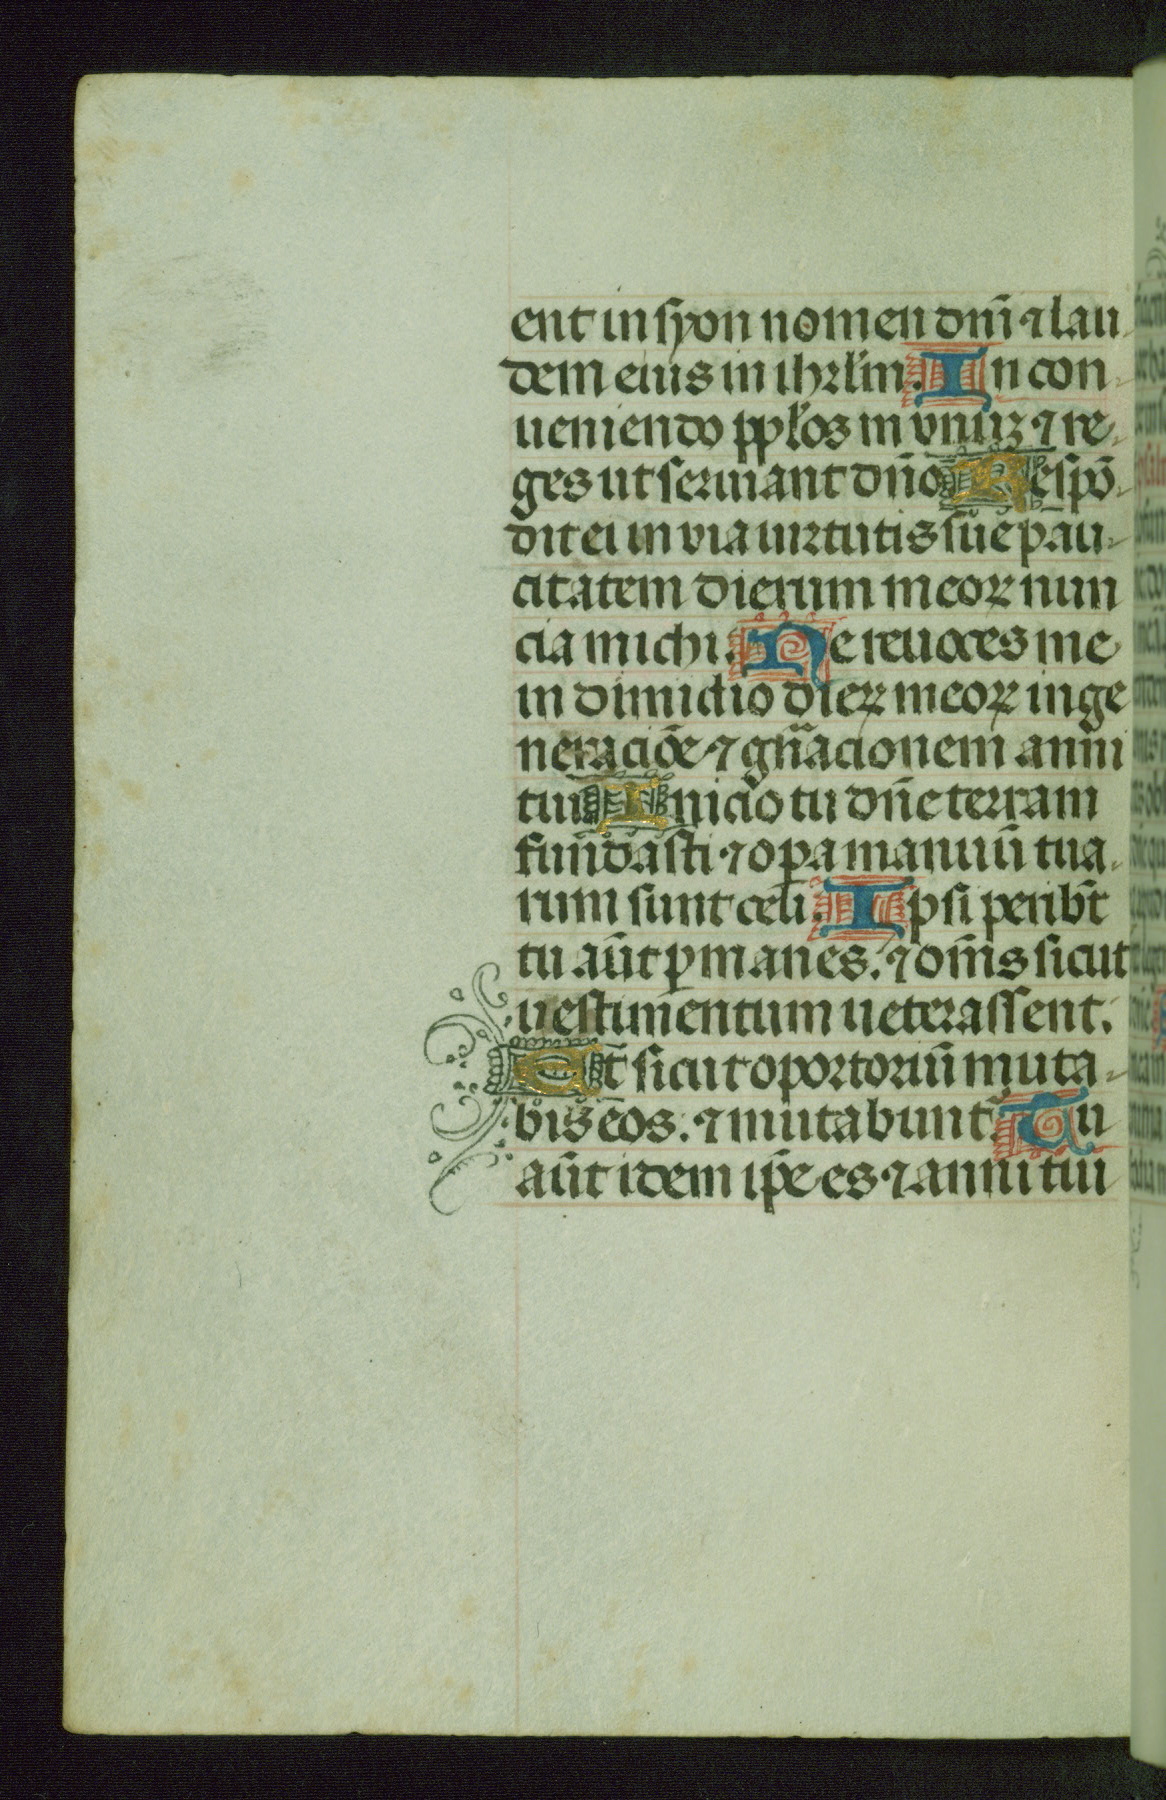 ent in syon nomen dn̄i ⁊ lau-
dem eius in ihrl̄m. In con-
ueniendo pplōs in vnuꝫ ⁊ re-
ges ut seruiant dn̄o Respō-
dit ei in via uirtutis sue pau-
citatem dierum meoꝝ nun
cia michi. Ne reuoces me
in dimidio dieꝝ meoꝝ in ge
neraciōe ⁊ gn̄acionem anni
tui Inicio tu dn̄e terram
fundasti ⁊ oꝑa manuū tua-
rum sunt celi. Ipsi peribt̄
tu aūt ꝑmanes. ⁊ om̄s sicut
uestimentum ueterassent.
Et sicut oportoriū muta-
bis eos. ⁊ mutabunt̄. Tu
aūt idem ip̄e es ⁊ anni tui